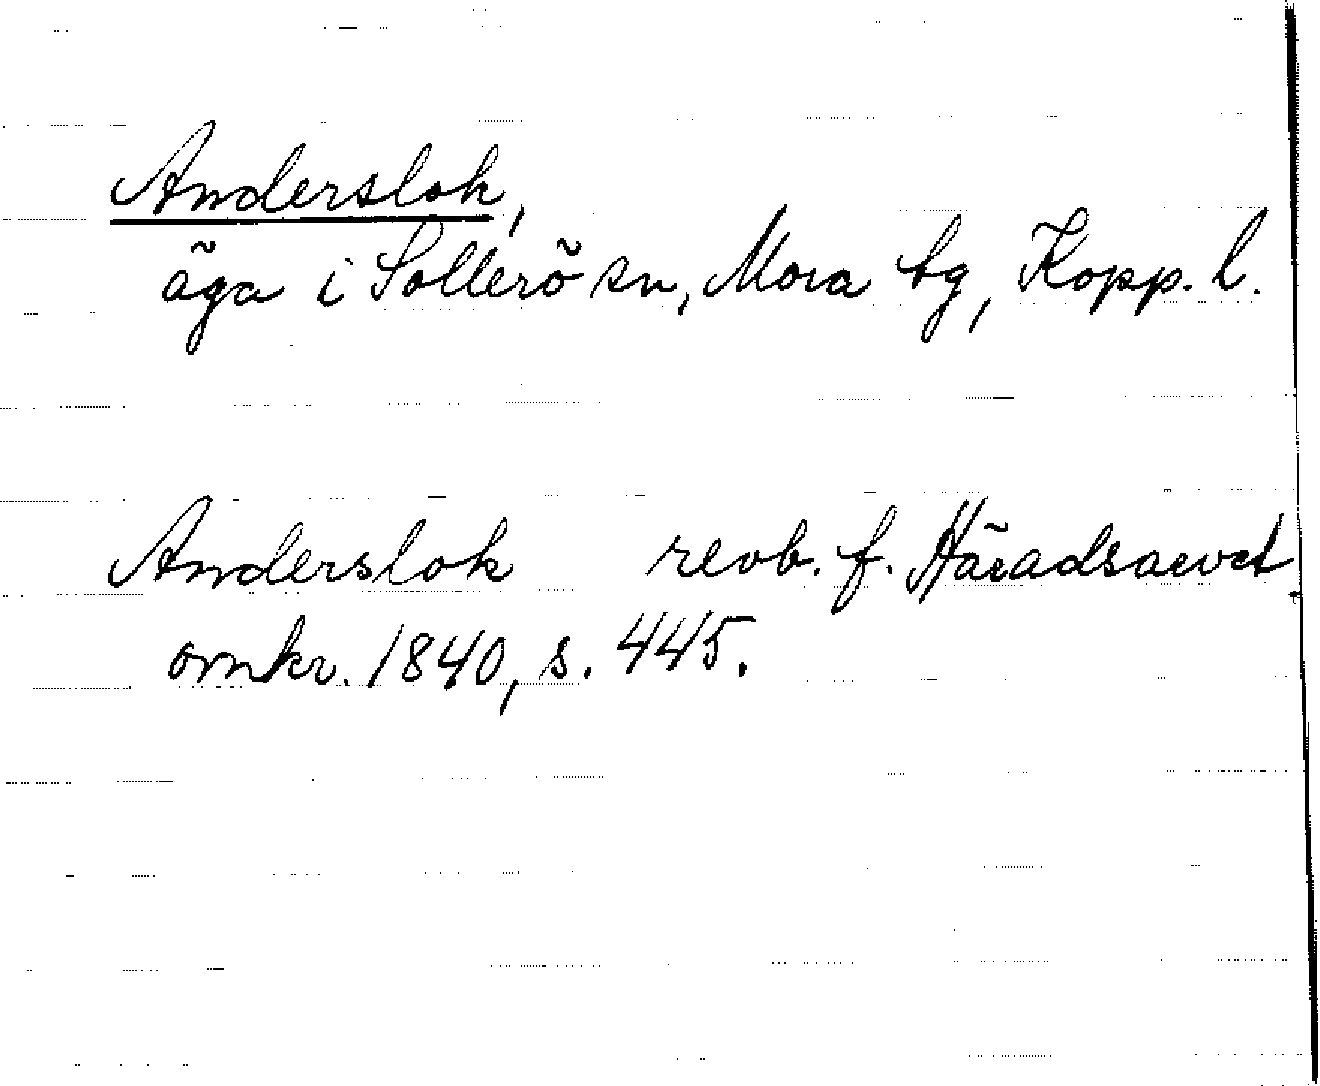 Anderslok,
äga i Sollerö sn, Mora tg, Kopp. l.
Anderslok revb. f. Häradsarvet
omkr. 1840, s. 445.